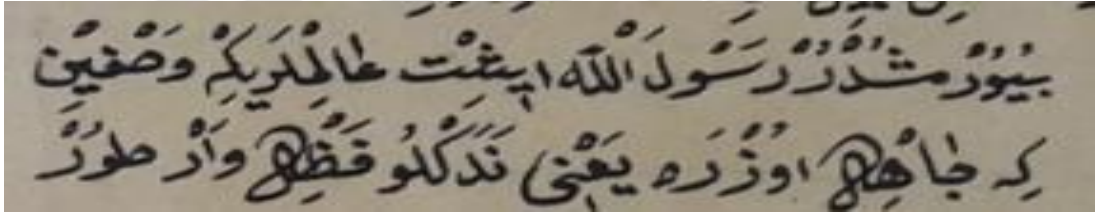 بُيُوُرْمشْدُرْ رَسُولَ اللّٰه ايشِتْ عَالِمْلَرِيكْ وَصْفِينْ
كِه جَاهِل اوُزْرَه يَعْنِى نَدَكْلُو فَضْلِ وَارْ طوُرْ